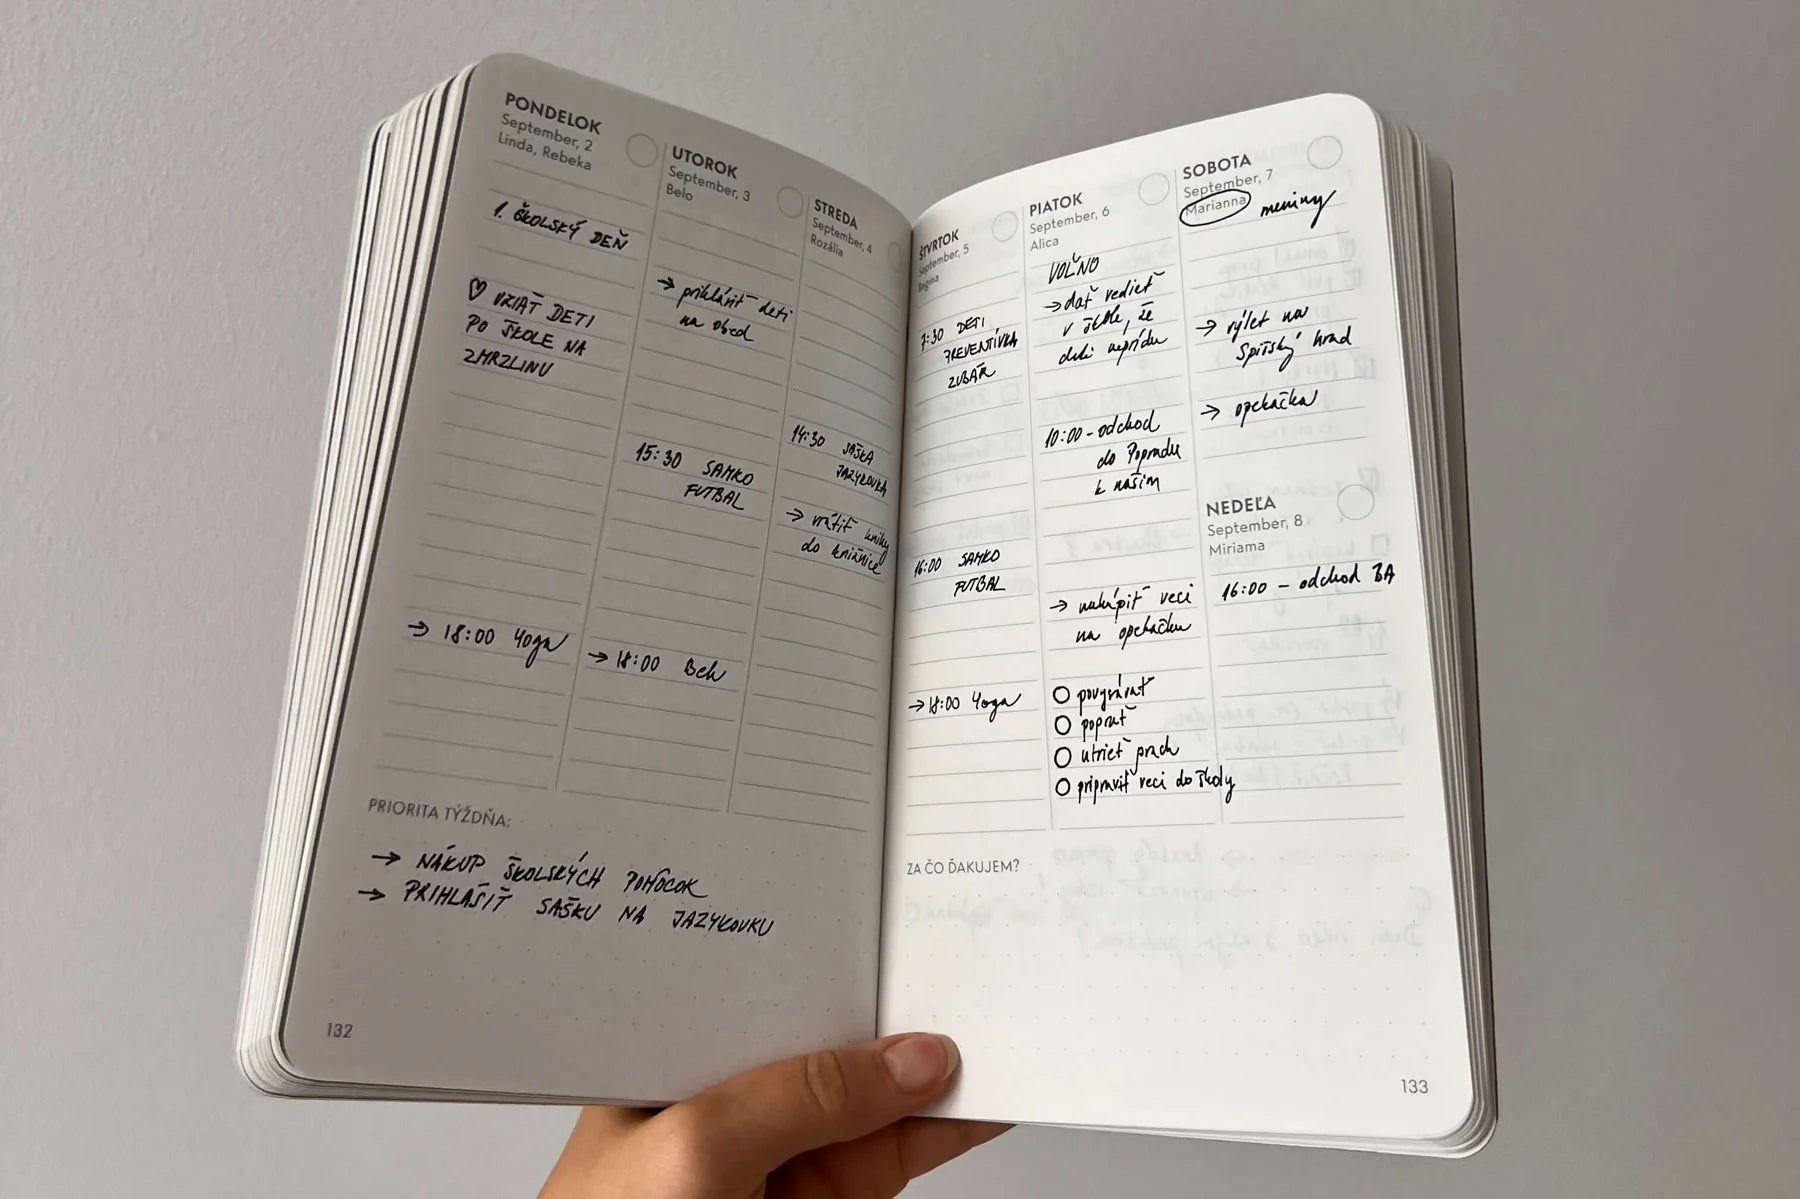 PONDELOK
September, 2
Linda, Rebeka
1. ŠKOLSKÝ DEŇ
VZIAŤ DETI
PO ŠKOLE NA
ZMRZLINU
→ 18:00 Yoga
UTOROK
September, 3
Belo
→ prihlásiť deti
na obed
15:30 SAMKO
FUTBAL
→ 18:00 Beh
STREDA
September, 4
Rozália
14:30 SAŠKA
JAZYKOVKA
→ vrátiť knihy
do knižnice
PRIORITA TÝŽDŇA:
→ NÁKUP ŠKOLSKÝCH POMÔCOK
→ PRIHLÁSIŤ SAŠKU NA JAZYKOVKU
132
ŠTVRTOK
September, 5
Regina
7:30 DETI
PREVENTÍVKA
ZUBÁR
16:00 SAMKO
FUTBAL
→ 18:00 Yoga
PIATOK
September, 6
Alica
VOĽNO
→ dať vedieť
v škole, že
deti neprídu
10:00 - odchod
do Popradu
k našim
→ nakúpiť veci
na opekačku
povysávať
poprať
utrieť prach
pripraviť veci do školy
SOBOTA
September, 7
Marianna meniny
→ výlet na
Spišský hrad
→ opekačka
NEDEĽA
September, 8
Miriama
16:00 - odchod BA
ZA ČO ĎAKUJEM?
133